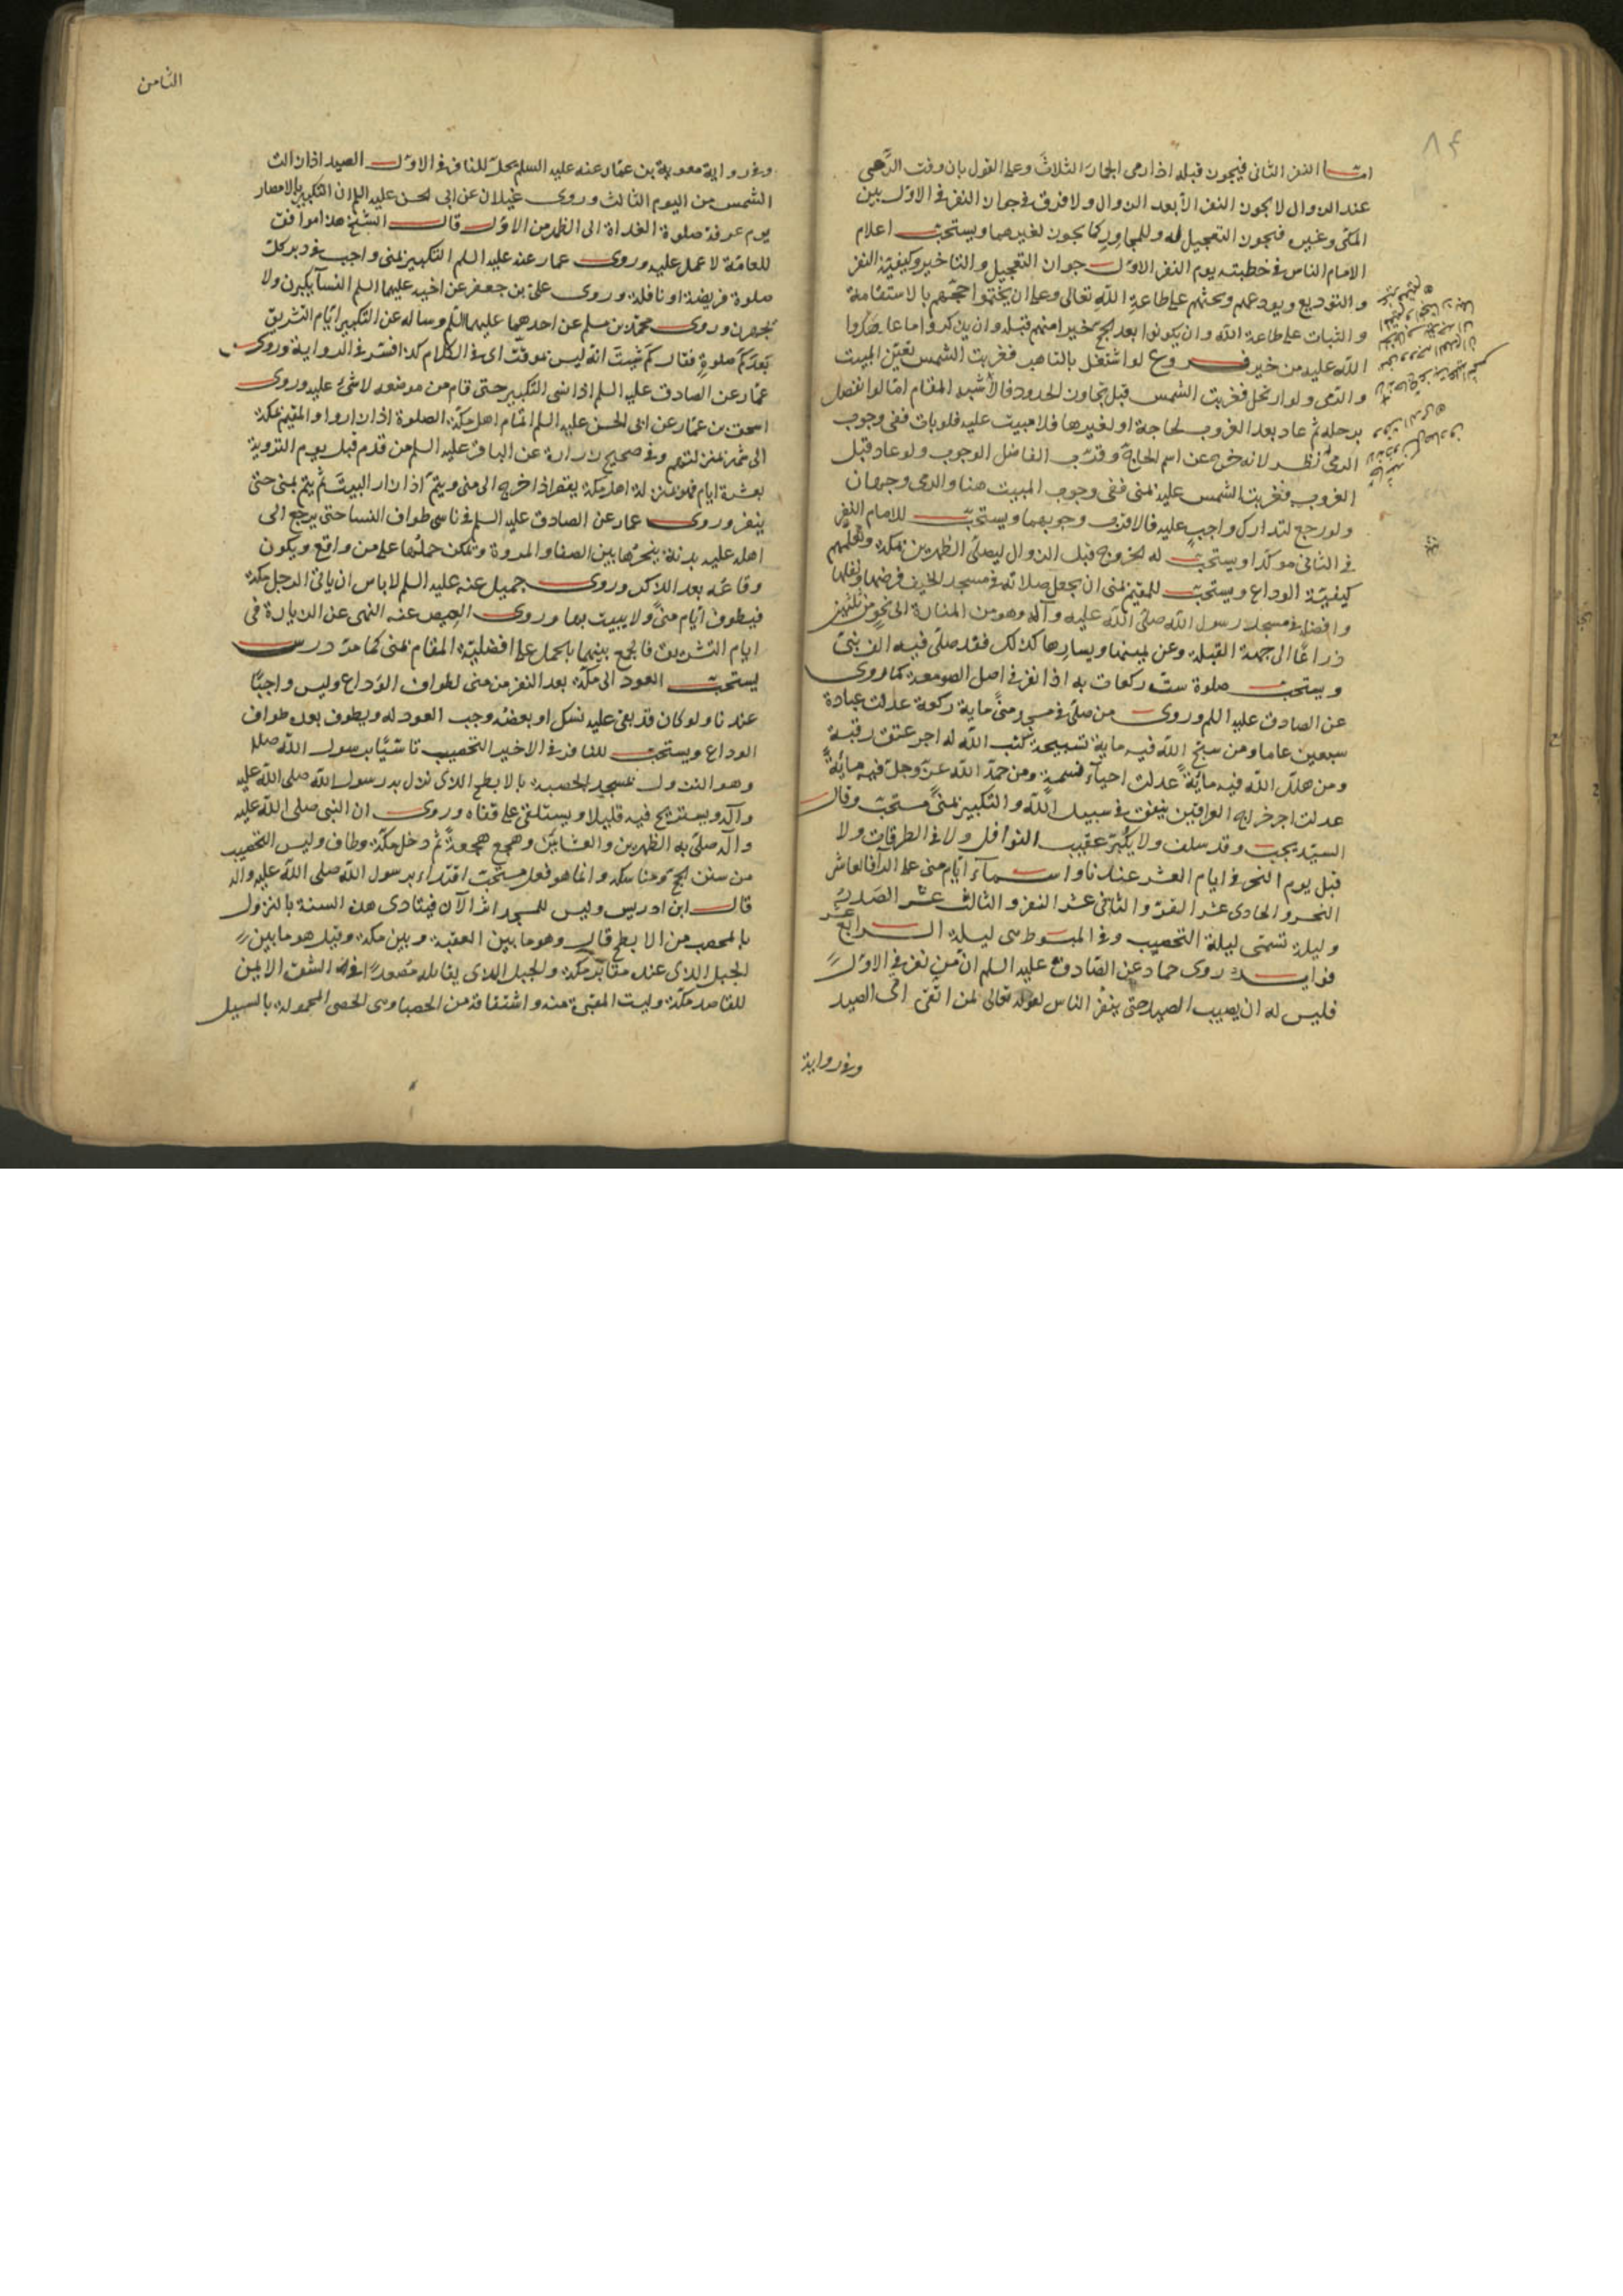 اما النفر الثاني فيجوز قبله اذا رمى الجمار الثلاث وعلى القول بان وقت الرمى
عند الزوال لا يجوز النفر الا بعد الزوال ولا فرق في جواز النفر في الاول بين
المكي وغيره فيجوز التعجيل له وللمجاور كما يجوز لغيرهما ويستحب اعلام
الامام الناس في خطبته يوم النفر الاول جواز التعجيل والتاخير وكيفية النفر
و التوديع ويودعهم ويحثهم على طاعة الله تعالى وعلى ان يختموا حجهم بالاستقامة
و الثبات على طاعة الله وان يكونوا بعد الحج خيرا منهم قبله وان يذكروا ما عاهدوا
الله عليه من خير فروع لو اشتغل بالتاهب فغربت الشمس تعين المبيت
و الرمى ولو ارتحل فغربت الشمس قبل تجاوز الحدود فالاشبه المقام اما لو انفصل
برحله ثم عاد بعد الغروب لحاجة او لغيرها فلا مبيت عليه فلو بات ففى وجوب
الرمى نظر لانه خرج عن اسم الحاج وقرب الفاضل الوجوب ولو عاد قبل
الغروب فغربت الشمس عليه بمنى ففى وجوب المبيت هنا والرمى وجهان
ولو رجع لتدارك واجب عليه فالاقرب وجوبهما ويستحب للامام النفر
في الثانى موكدا ويستحب له الخروج قبل الزوال ليصلى الظهرين بمكة ويعلمهم
كيفية الوداع ويستحب للمقيم بمنى ان يجعل صلاته في مسجد الخيف فرضها ونفلها
و افضله في مسجد رسول الله صلى الله عليه وآله وهو من المنارة الى نحو من ثلثين
ذراعا الى جهة القبلة وعن يمينها ويسارها كذلك فقد صلى فيه الف نبى
و يستحب صلوة ست ركعات به اذا نفر في اصل الصومعة كما روى
عن الصادق عليه السلم وروى من صلى في مسجد منى ماية ركعة عدلت عبادة
سبعين عاما ومن سبح الله فيه ماية تسبيحة كتب الله له اجر عتق رقبة
ومن هلل الله فيه ماية عدلت احياء نسمة ومن حمد الله عز وجل فيه ماية
عدلت اجر خراج العراقين ينفق في سبيل الله و التكبير بمنى مستحب وقال
السيد يجب وقد سلف ولا يكبر عقيب النوافل ولا في الطرقات ولا
قبل يوم النحر في ايام العشر عندنا واسماء ايام منى على الراء فالعاشر
النحر و الحادى عشر القر و الثانى عشر النفر و الثالث عشر الصدر
و ليلة تسمى ليلة التحصيب وفي المبسوط هى ليلة الرابع عشر
فوايد روى حماد عن الصادق عليه السلم ان من نفر في الاول
فليس له ان يصيب الصيد حتى ينفر الناس لقوله تعالى لمن اتقى اى الصيد
وفي رواية
الثامن
وفي رواية معوية بن عمار عنه عليه السلم يحل للنافر في الاول الصيد اذا زالت
الشمس من اليوم الثالث وروى غيلان عن ابى الحسن عليه السلم ان التكبير بالامصار
يوم عرفة صلوة الغداة الى الظهر من الاول قال الشيخ هذا موافق
للعامة لا عمل عليه وروى عمار عنه عليه السلم التكبير بمنى واجب في دبر كل
صلوة فريضة او نافلة وروى على بن جعفر عن اخيه عليهما السلم النسآ يكبرن ولا
يجهرن وروى محمد بن مسلم عن احدهما عليهما السلم وساله عن التكبير ايام التشريق
بعد كم صلوة فقال كم شيت انه ليس موقت اى في الكلام كذا فسر في الرواية وروى
عمار عن الصادق عليه السلم اذا نسى التكبير حتى قام من موضعه لا شىء عليه وروى
اسحق بن عمار عن ابى الحسن عليه السلم اتمام اهل مكة الصلوة اذا زاروا والمقيم بمكة
الى شهر بمنزلتهم وفي صحيح زرارة عن الباقر عليه السلم من قدم قبل يوم التروية
بعشرة ايام فهو بمنزلة اهل مكة يقصر اذا خرج الى منى ويتم اذا زار البيت ثم يتم بمنى حتى
ينفر وروى عمار عن الصادق عليه السلم في ناسى طواف النسا حتى يرجع الى
اهله عليه بدنة ينحرها بين الصفا والمروة ويمكن حملها على من واقع ويكون
وقاعه بعد الذكر وروى جميل عنه عليه السلم لا باس ان ياتى الرجل مكة
فيطوف ايام منى ولا يبيت بها وروى العيص عنه النهى عن الزيارة فى
ايام التشريق فالجمع بينهما بالحمل على افضلية المقام بمنى كما مر درس
يستحب العود الى مكة بعد النفر من منى لطواف الوداع وليس واجبا
عندنا ولو كان قد بقى عليه نسك او بعضه وجب العود له ويطوف بعده طواف
الوداع ويستحب للنافر في الاخير التحصيب تاسيا برسول الله صلى
وهو النزول بمسجد الحصبة بالابطح الذى نزل به رسول الله صلى الله عليه
وآله ويستريح فيه قليلا ويستلقى على قفاه وروى ان النبى صلى الله عليه
وآله صلى به الظهرين والعشاءين وهجع هجعة ثم دخل مكة وطاف وليس التحصيب
من سنن الحج ومناسكه وانما هو فعل مستحب اقتداء برسول الله صلى الله عليه واله
قال ابن ادريس وليس للمسجد اثر الآن فيتادى هذه السنة بالنزول
بالمحصب من الابطح قال وهو ما بين العقبة وبين مكة وقيل هو ما بين
الجبل الذى عنده مقابر مكة والجبل الذى يقابله مصعدا في الشق الايمن
للقاصد مكة وليست المقبرة منه واشتقاقه من الحصبا وهى الحصى المحمولة بالسيل